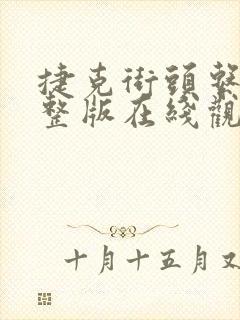 捷克街頭
整版在綫觀
十月十五月又